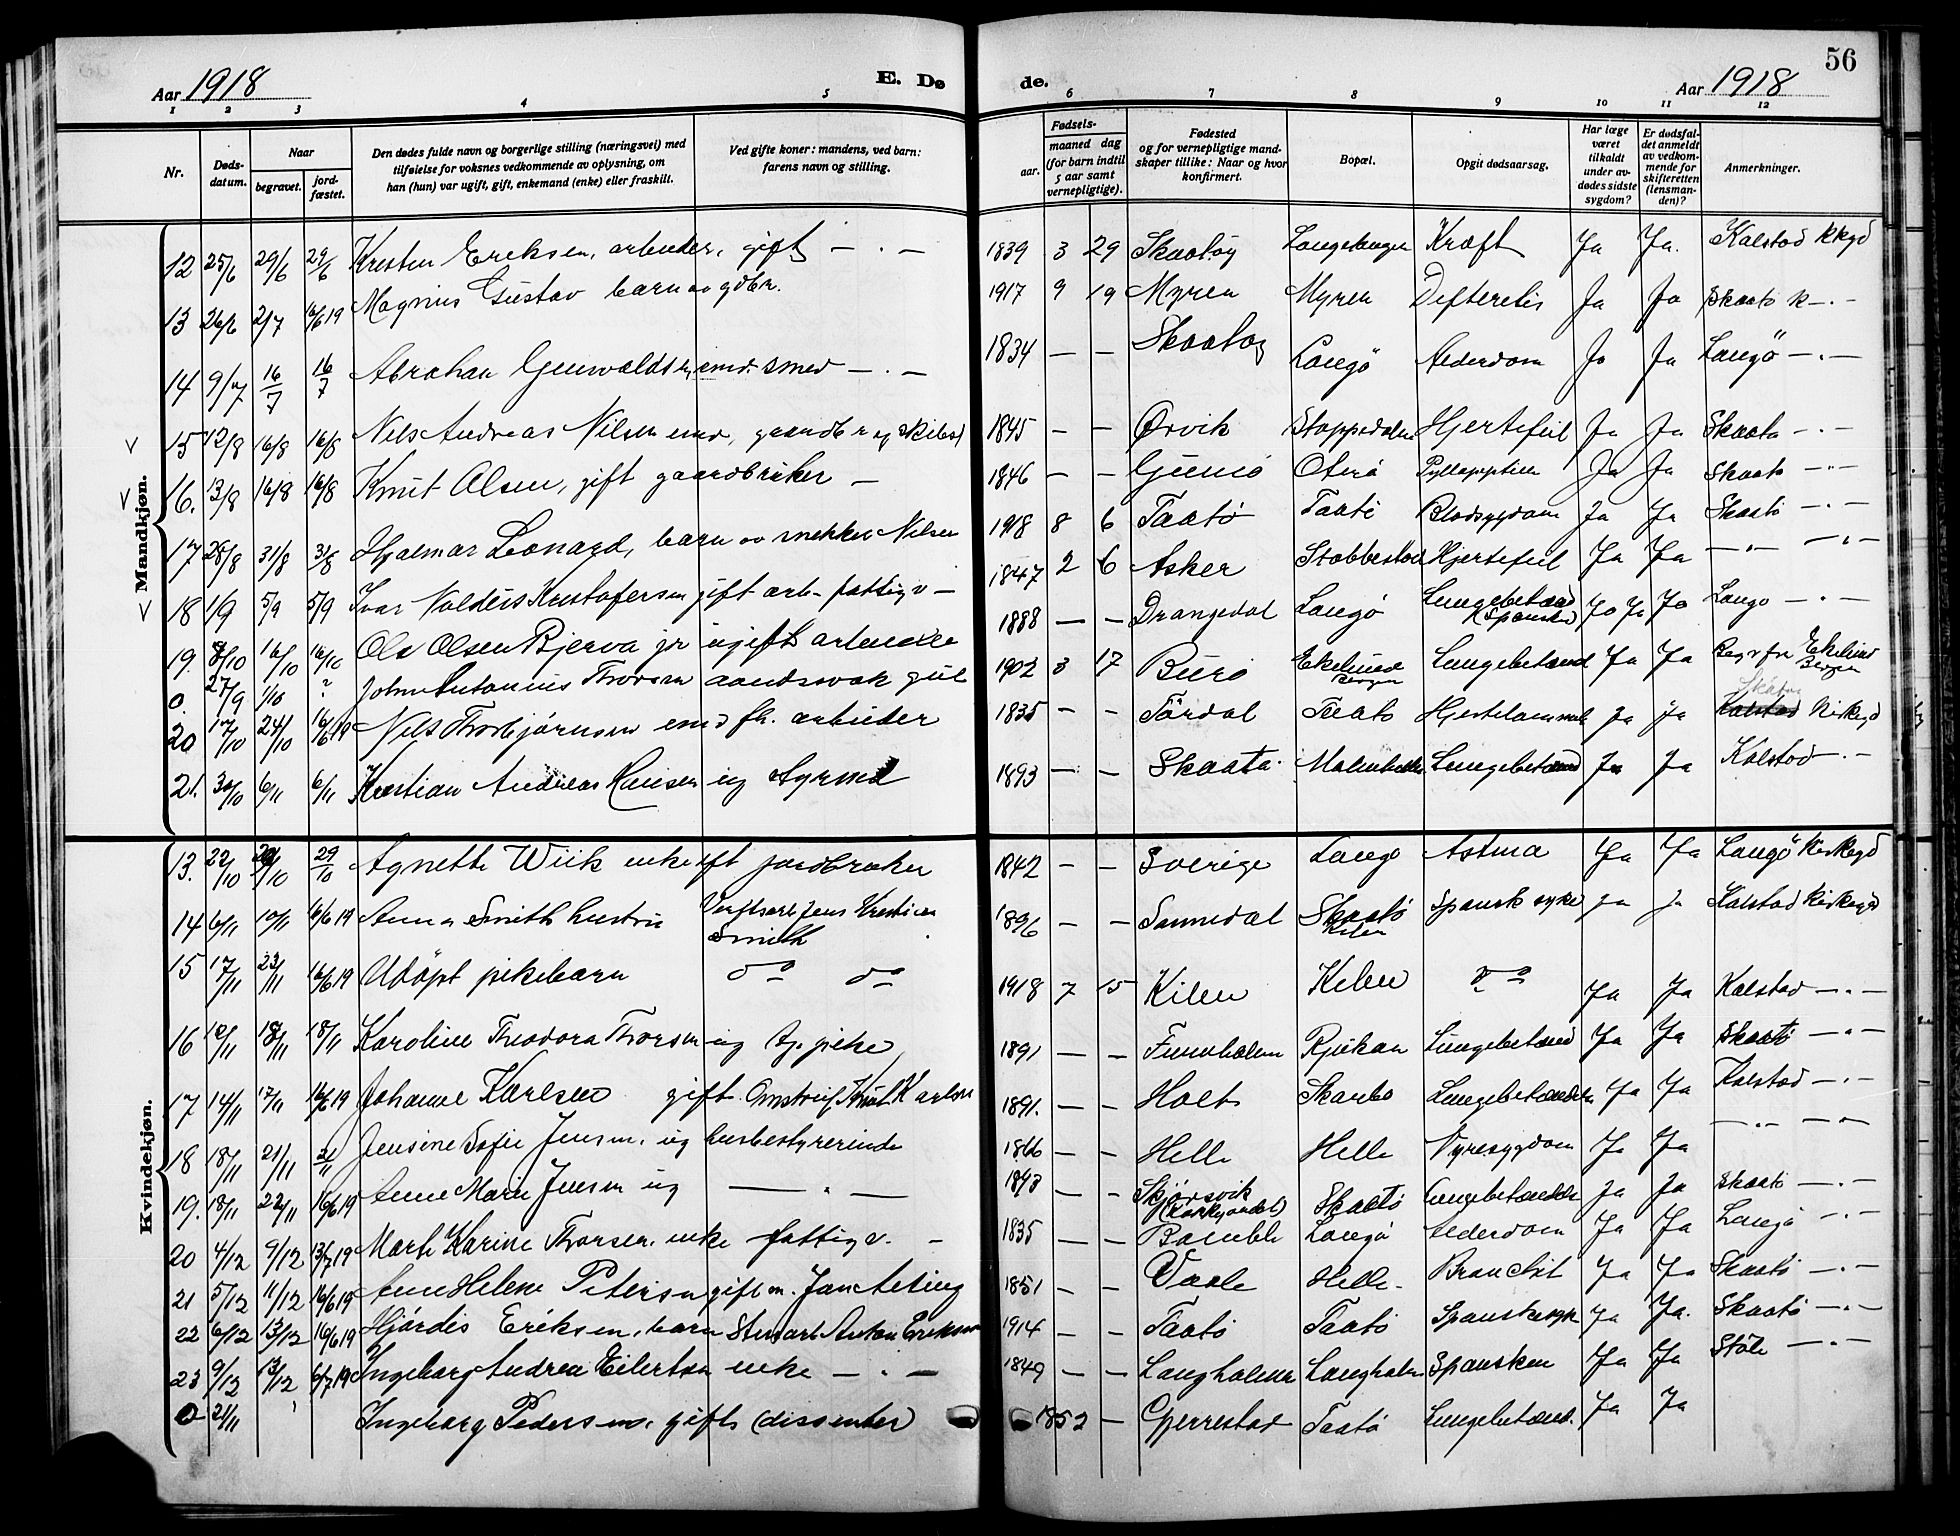 Aar 1918 E. Dø
de. Aar 1918 56
1 2 3 4 5 6 7 8 9 10 11 12
Nr. Døds-datum. Naar begravet. jord-fæstet. Den dødes fulde navn og borgerlige stilling (næringsvei) med tilføielse for voksnes vedkommende av oplysning, om han (hun) var ugift, gift, enkemand (enke) eller fraskilt. Ved gifte koner: mandens, ved barn: farens navn og stilling.
Fødsels- aar. maaned dag (for barn indtil 5 aar samt vernepligtige). Fødested og for vernepligtige mand-skaper tillike: Naar og hvor konfirmert. Bopæl. Opgit dødsaarsag. Har læge været tilkaldt under av-dødes sidste sygdom? Er dødsfal-det anmeldt av vedkom-mende for skifteretten (lensman-den)? Anmerkninger.
Mandkjøn.
12 25/6 29/6 29/6 Kresten Eriksen, arbeider, gift — . — 1839 3 29 Skaatøy Kræft Ja Ja. Kalstad kkgd
13 26/6 2/7 16/6 19 Magnus Gustav barn av gdbr. 1917 9 19 Myren Myren Difteritis Ja Ja Skaatø k — . —
14 9/7 16/7 16/7 Abraham emd. smed — . — 1834 — — Skaatøy Langö Alderdom Ja Ja Langö — . —
15 12/8 16/8 16/8 Nils Andreas Nilsen emd, 1845 — — Ørvik Hjertefeil Ja Ja Skaatø — . —
16. 13/8 16/8 16/8 Knut Olsen, gift gaardbruker — 1846 — — Ja Ja Skaatø — . —
17 28/8 31/8 31/8 Hjalmar Leonard, barn av snekker Nilsen 1918 8 6 Taatø Taatø Blodsygdom Ja Ja Skaatø — . —
18 1/9 5/9 5/9 Ivar Kristofersen gift arb. fattigv — 1847 2 6 Asker Stabbestad Hjertefeil Ja Ja — . — — . —
19. 8/10 16/10 16/10 Ole Olsen Bjerva jr ugift arbeider 1888 — — Drangedal Langø Lungebetænd (Spanske) Ja Ja Ja Langø — . —
0. 27/9 1/10 ? Johan Antonius Thorsen aandssvak gut 1902 3 17 Burø Ekelund Bergen Lungebetænd Ja Ja Ekelund Bergen
20 17/10 24/10 16/6 19 Nils Thorbjørnsen emd fh. arbeider 1835 — — Tørdal Taatø Hjertelammelse Ja Ja Skåtøy Kalstad Kirkegd
21. 30/10 6/11 6/11 Kristian Andreas Hansen ug styrmd 1893 — — Skaatø. Lungebetænd Ja Ja Kalstad — . —
Kvindekjøn.
13. 22/10 29/10 29/10 Agnethe Wiik enke eft jordbruker 1842 — — Sverige Langø Astma Ja Ja Langö Kirkegd
14 6/11 10/11 16/6 19 Anna Smith hustru Verftsarb Jens Kristian Smith 1896 — — Sannidal Skaatø Kilen Spansk syke Ja Ja Kalstad Kirkegd
15 17/11 23/11 16/6 19 Udöpt pikebarn do do 1918 7 15 Kilen Kilen do Ja Ja Kalstad — . —
16 12/11 18/11 18/11 Karoline Theodora Thorsen ug tj. pike 1891 — — Furuholmen Rjukan Lungebetænd Ja Ja Skaatø — . —
17 14/11 17/11 16/6 19 Johanne Karlsen gift Knut Karlsen 1891. — — Holt Lungebetændelse Ja Ja Kalstad — . —
18 18/11 21/11 21/11 Jensine Sofie Jensen, ug husbestyrerinde 1866 — — Helle Helle Nyresygdom Ja Ja — . — — . —
19. 18/11 22/11 16/6 19 Anne Marie Jensen ug — . — 1893 — — Skjørsvik Skaatø Lungebetændelse Ja Ja Skaatø — . —
20 4/12 9/12 13/7 19 Marte Karine Thorsen. enke fattigv. — 1835 — — Bamble Langø Alderdom Ja Ja Langø — . —
21 5/12 11/12 16/6 19 Anne Helene Petersen gift m. Jan 1851 — — Vaale Helle — Bronchit Ja Ja Skaatø — . —
22 6/12 13/12 16/6 19 Hjördis Eriksen, barn Stuart Anton Eriksen 1914 — — Taatø Taatø Spanskesyke Ja Ja. Skaatø — . —
23 9/12 13/12 6/7 19 Ingeborg Andrea Eilertsen enke — . — 1849 — — Langholmen Langholmen Spansken Ja Ja Støle — . —
0 21/11 Ingeborg Pedersen, gift (dissenter) 1852 — Gjerrestad Taatø Lungebetænd. Ja Ja